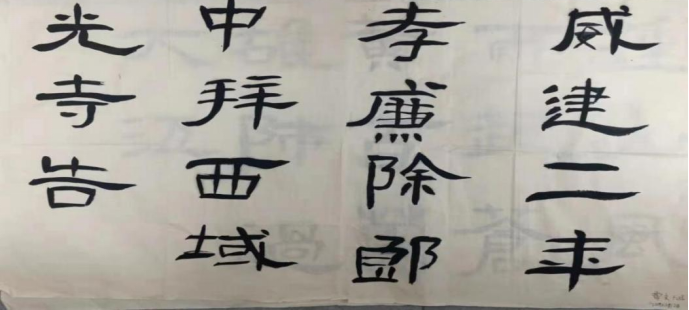 威建二年
孝廉除郎
中拜西域
光寺告